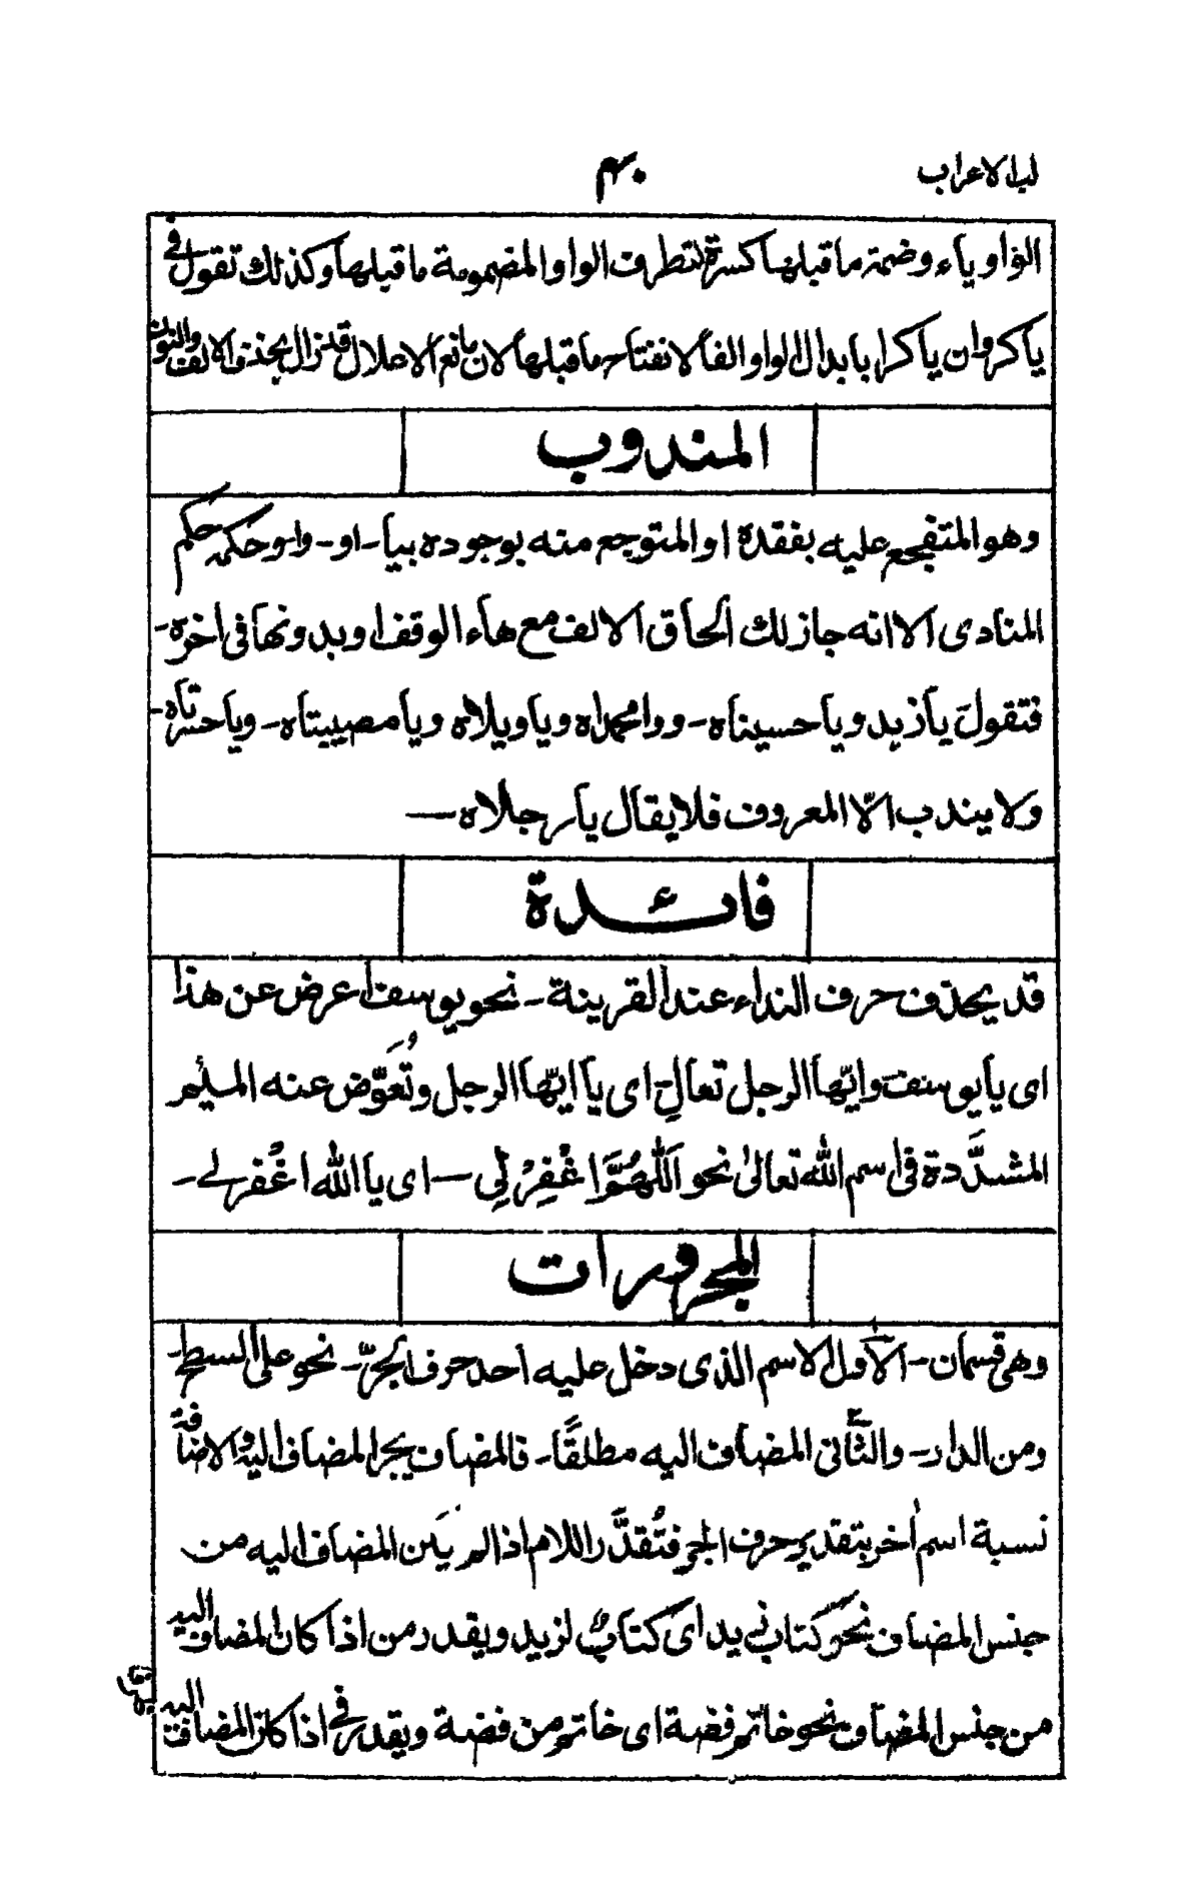 لباب الاعراب
۴۰
الواو ياء وضمة ماقبلها كسرة لتطرف الواو المضمومة ماقبلها وكذلك تقول في
يا كروان يا كرا بابدال الواو الفا لانفتاح ماقبلها لان مانع الاعلال قد زال بحذف الالف والنون
المندوب
وهو المتفجع عليه بفقده او المتوجع منه بوجوده بيا - او - وا وحكمه حكم
المنادى الا انه جاز لك الحاق الالف مع هاء الوقف او بدونها في اخره -
فتقول يا زيد ويا حسيناه - ووامحمداه وياويلاه ويا مصيبتاه - ويا حسرتاه -
ولا يندب الّا المعروف فلا يقال يا رجلاه —
فائدة
قد يحذف حرف النداء عند القرينة - نحو يوسف اعرض عن هذا
اى يا يوسف وايّها الرجل تعال اى يا ايّها الرجل وتُعَوّض عنه الميم
المشدَّدة في اسم الله تعالىٰ نحو اَللّٰهُمَّ اغْفِرْ لِي — اى يا الله اغفر لے -
المجرورات
وهى قسمان - الاول الاسم الذى دخل عليه احد حرف الجرّ - نحو على السطح
ومن الدار - والثانى المضاف اليه مطلقًا - فالمضاف يجر المضاف اليه والاضافة
نسبة اسم اٰخر بتقدير حرف الجر فتُقدَّر اللام اذا لم يكن المضاف اليه من
جنس المضاف نحو كتاب زيد اى كتابٌ لزيد ويقدر من اذا كان المضاف اليه
من جنس المضاف نحو خاتم فضة اى خاتم من فضة ويقدر في اذا كان المضاف اليه